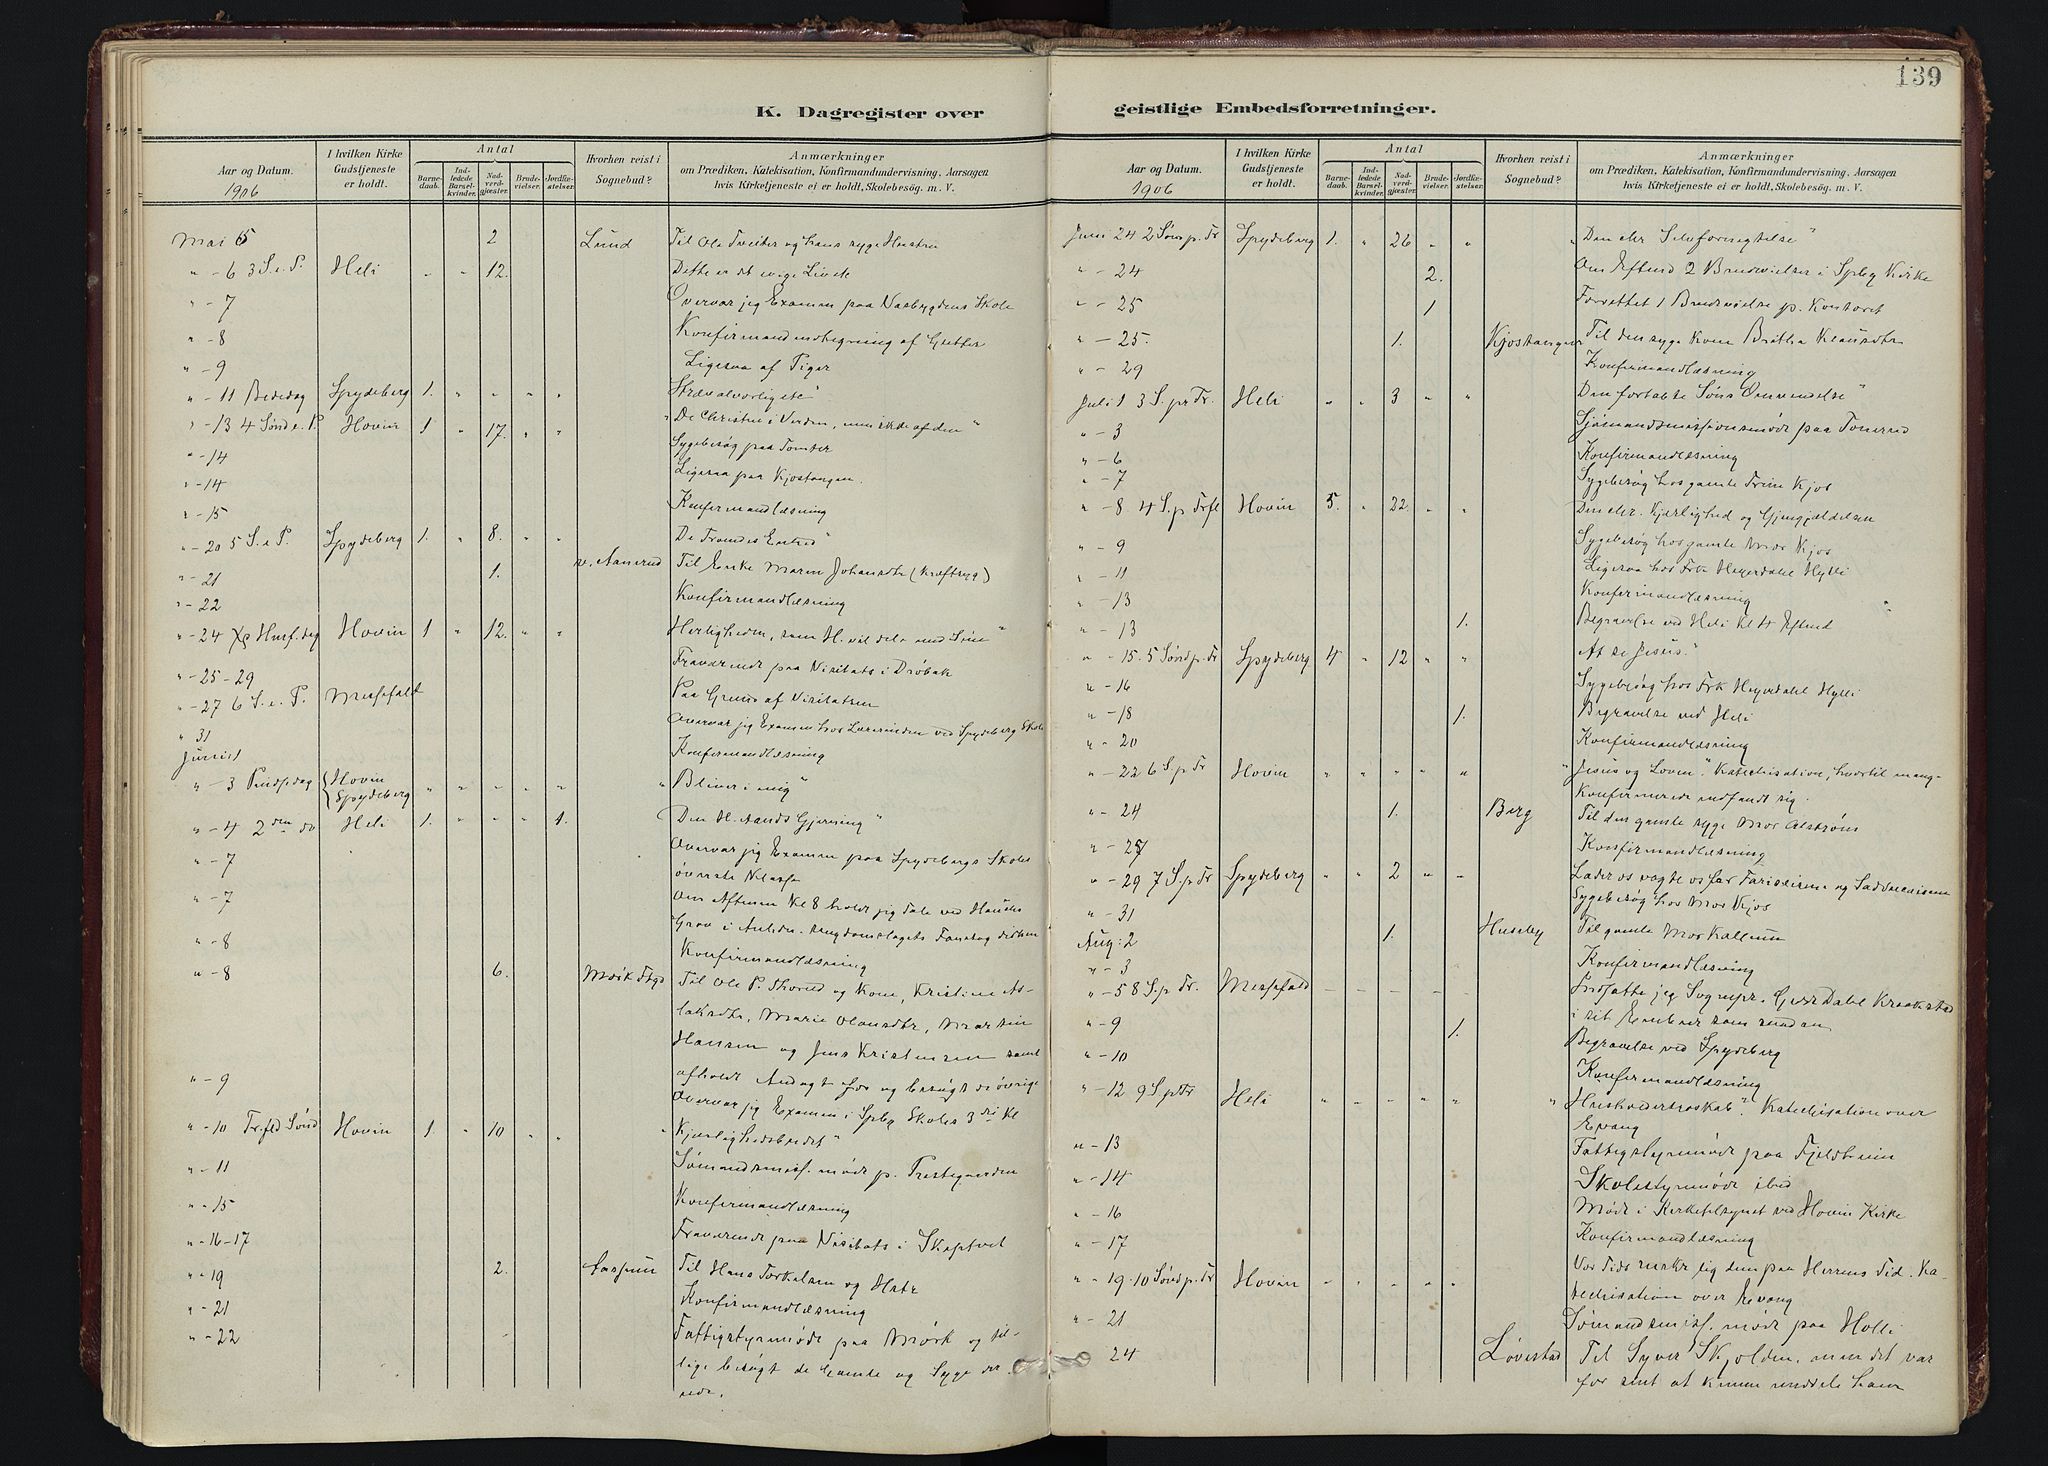 139
K. Dagregister over
Aar og Datum.
1906
I hvilken Kirke Gudstjeneste er holdt.
Antal
Barnedaab.
Indledede Barselkvinder.
Nadverdgjæster.
Brudevielser.
Jordfæstelser.
Hvorhen reist i Sognebud?
Anmærkninger
om Prædiken, Katekisation, Konfirmandundervisning, Aarsagen
hvis Kirketjeneste ei er holdt, Skolebesög. m. V.
Mai 5 2 Lund Til Ole Tveiter og hans syge Hustru
" - 6 3 S. e. P. Heli " " 12. Dette er det evige Livet
" - 7 Overvar jeg Examen paa Skole
" - 8 Konfirmandindtegning af Gutter
" - 9 Ligesaa af Piger
" - 11 Bededag Spydeberg 1. " " " "
" - 13 4 Sønd e. P. Hovin 1 " 17. " " "De Christne i Verden, men ikke af den"
" - 14 Sygebesøg paa Tomter
" - 14 Ligesaa paa Kjostangen.
" - 15 Konfirmandlæsning
" - 20 5 S. e P. Spydeberg 1. " 8. " "
" - 21 1. Til Enke Maren Johansdtr (Kræftsyg)
" - 22 Konfirmandlæsning
" - 24 Kr Himf. dag Hovin 1 " 12. " " Herligheden, som H. vil dele med Sine"
" - 25 - 29 Fraværende paa Visitats i Drøbak
" - 27 6 S. e. P. Messefald Paa Grund af Visitatsen
" 31 Overvar jeg Examen hos Lærerinden ved Spydeberg Skole
Juni 1 Konfirmandlæsning
" - 3 Pindsedag { Hovin Spydeberg " " " " " "Bliver i mig"
" - 4 2den do Heli 1. " " " 1. Den H. Aands Gjerning"
" - 7 Overvar jeg Examen paa Spydebergs Skoles
øverste Klasse
" - 7 Om Aftenen Kl 8 holdt jeg Tale ved
Grav i
" - 8 Konfirmandlæsning
" - 8 6. Mørk Til Ole P. og Kone, Kristine As-
laksdtr, Marie Olausdtr, Martin
Hansen og Jens Kristensen samt
afholdt Andagt for og besøgt de øvrige
" - 9 Overvar jeg Examen i Spbg Skoles 3die Kl
" - 10 Tr. fld Sønd Hovin 1 " 10 " " "Kjærlighedsbudet"
" - 11 Sømandsmisf. møde p. Prestegaarden
" - 15 Konfirmandlæsning
" - 16 - 17 Fraværende paa Visitats i Skiptvet
" - 19 2. Til Hans Torkelsen og Hstr
" - 21 Konfirmandlæsning
" - 22 Fattigstyrmøde paa Mørk og til-
lige besøgt de Gamle og Syge der-
nede.
geistlige Embedsforretninger.
Aar og Datum.
1906
I hvilken Kirke Gudstjeneste er holdt.
Antal
Barnedaab.
Indledede Barselkvinder.
Nadverdgjæster.
Brudevielser.
Jordfæstelser.
Hvorhen reist i Sognebud?
Anmærkninger
om Prædiken, Katekisation, Konfirmandundervisning, Aarsagen
hvis Kirketjeneste ei er holdt, Skolebesög. m. V.
Juni 24 2 Søn p. Tr Spydeberg 1. " 26 " " "Den chr Selvfornegtelse"
" - 24 2. Om Eftmd 2 Brudevielser i Spbg Kirke
" - 25 1 Forrettet 1 Brudevielse p. Kontoret
" - 25. 1. Kjostangen Til den syge Kone
" - 29 Konfirmandlæsning
Juli 1 3 S. p Tr. Heli " " 3 " " Den fortabte Søns Omvendelse"
" - 3 Sjømandsmissionsmøde paa
" - 6 Konfirmandlæsning
" - 7 Sygebesøg hos gamle Trine Kjos
" - 8 4 S. p Trft Hovin 5. " 22. " " Den chr. Kjærlighed og Gjengjældelsen
" - 9 Sygebesøg hos gamle Mor Kjos
" - 11 Ligesaa hos Frk Heyerdahl Hylli
" - 13 Konfirmandlæsning
" - 13 1. Begravelse ved Heli Kl 4 Eftmd
" - 15. 5 Sønd p. Tr Spydeberg 4 " 12 " " At se Jesus."
" - 16 Sygebesøg hos Frk Heyerdahl Hylli
" - 18 1. Begravelse ved Heli
" - 20 Konfirmandlæsning
" - 22 6 S. p Tr Hovin " " " " " "Jesus og Loven". Katechisation, hvortil mange
Konfirmerede indfandt sig.
" - 24 1. Berg Til den gamle syge Mor
" - 27 Konfirmandlæsning
" - 29 7 S. p Tr Spydeberg " " 2 " " Lader os vogte os for Farisæerne og Sadducæerne
" - 31 Sygebesøg hos Mor Kjos
Aug: 2 1. Huseby Til gamle Mor
" - 3 Konfirmandlæsning
" - 5 8 S. p Tr. Messefald - - - - - Indsatte jeg Sognepr. Dahl Kraakstad
i sit Embede som
" - 9 1. Begravelse ved Spydeberg
" - 10 Konfirmandlæsning
" - 12 9 S. p Tr Heli " " " " " "Husholderskab". Katechisation over
Evang
" - 13 Fattigstyrmøde paa Fjeldheim
" - 14 Skolestyrmøde ibid
" - 16 Møde i Kirketilsynet ved Hovin Kirke
" - 17 Konfirmandlæsning
" - 19. 10 Sønd p. Tr Hovin " " " " " Vor Tids mærke lig dem paa Herrens Tid. Ka-
techisation over Evang
" - 21 Sømandsmisf. møde paa Holli
24 Løvestad Til Syver Skjolden, men det var
for sent at kunne meddele ham